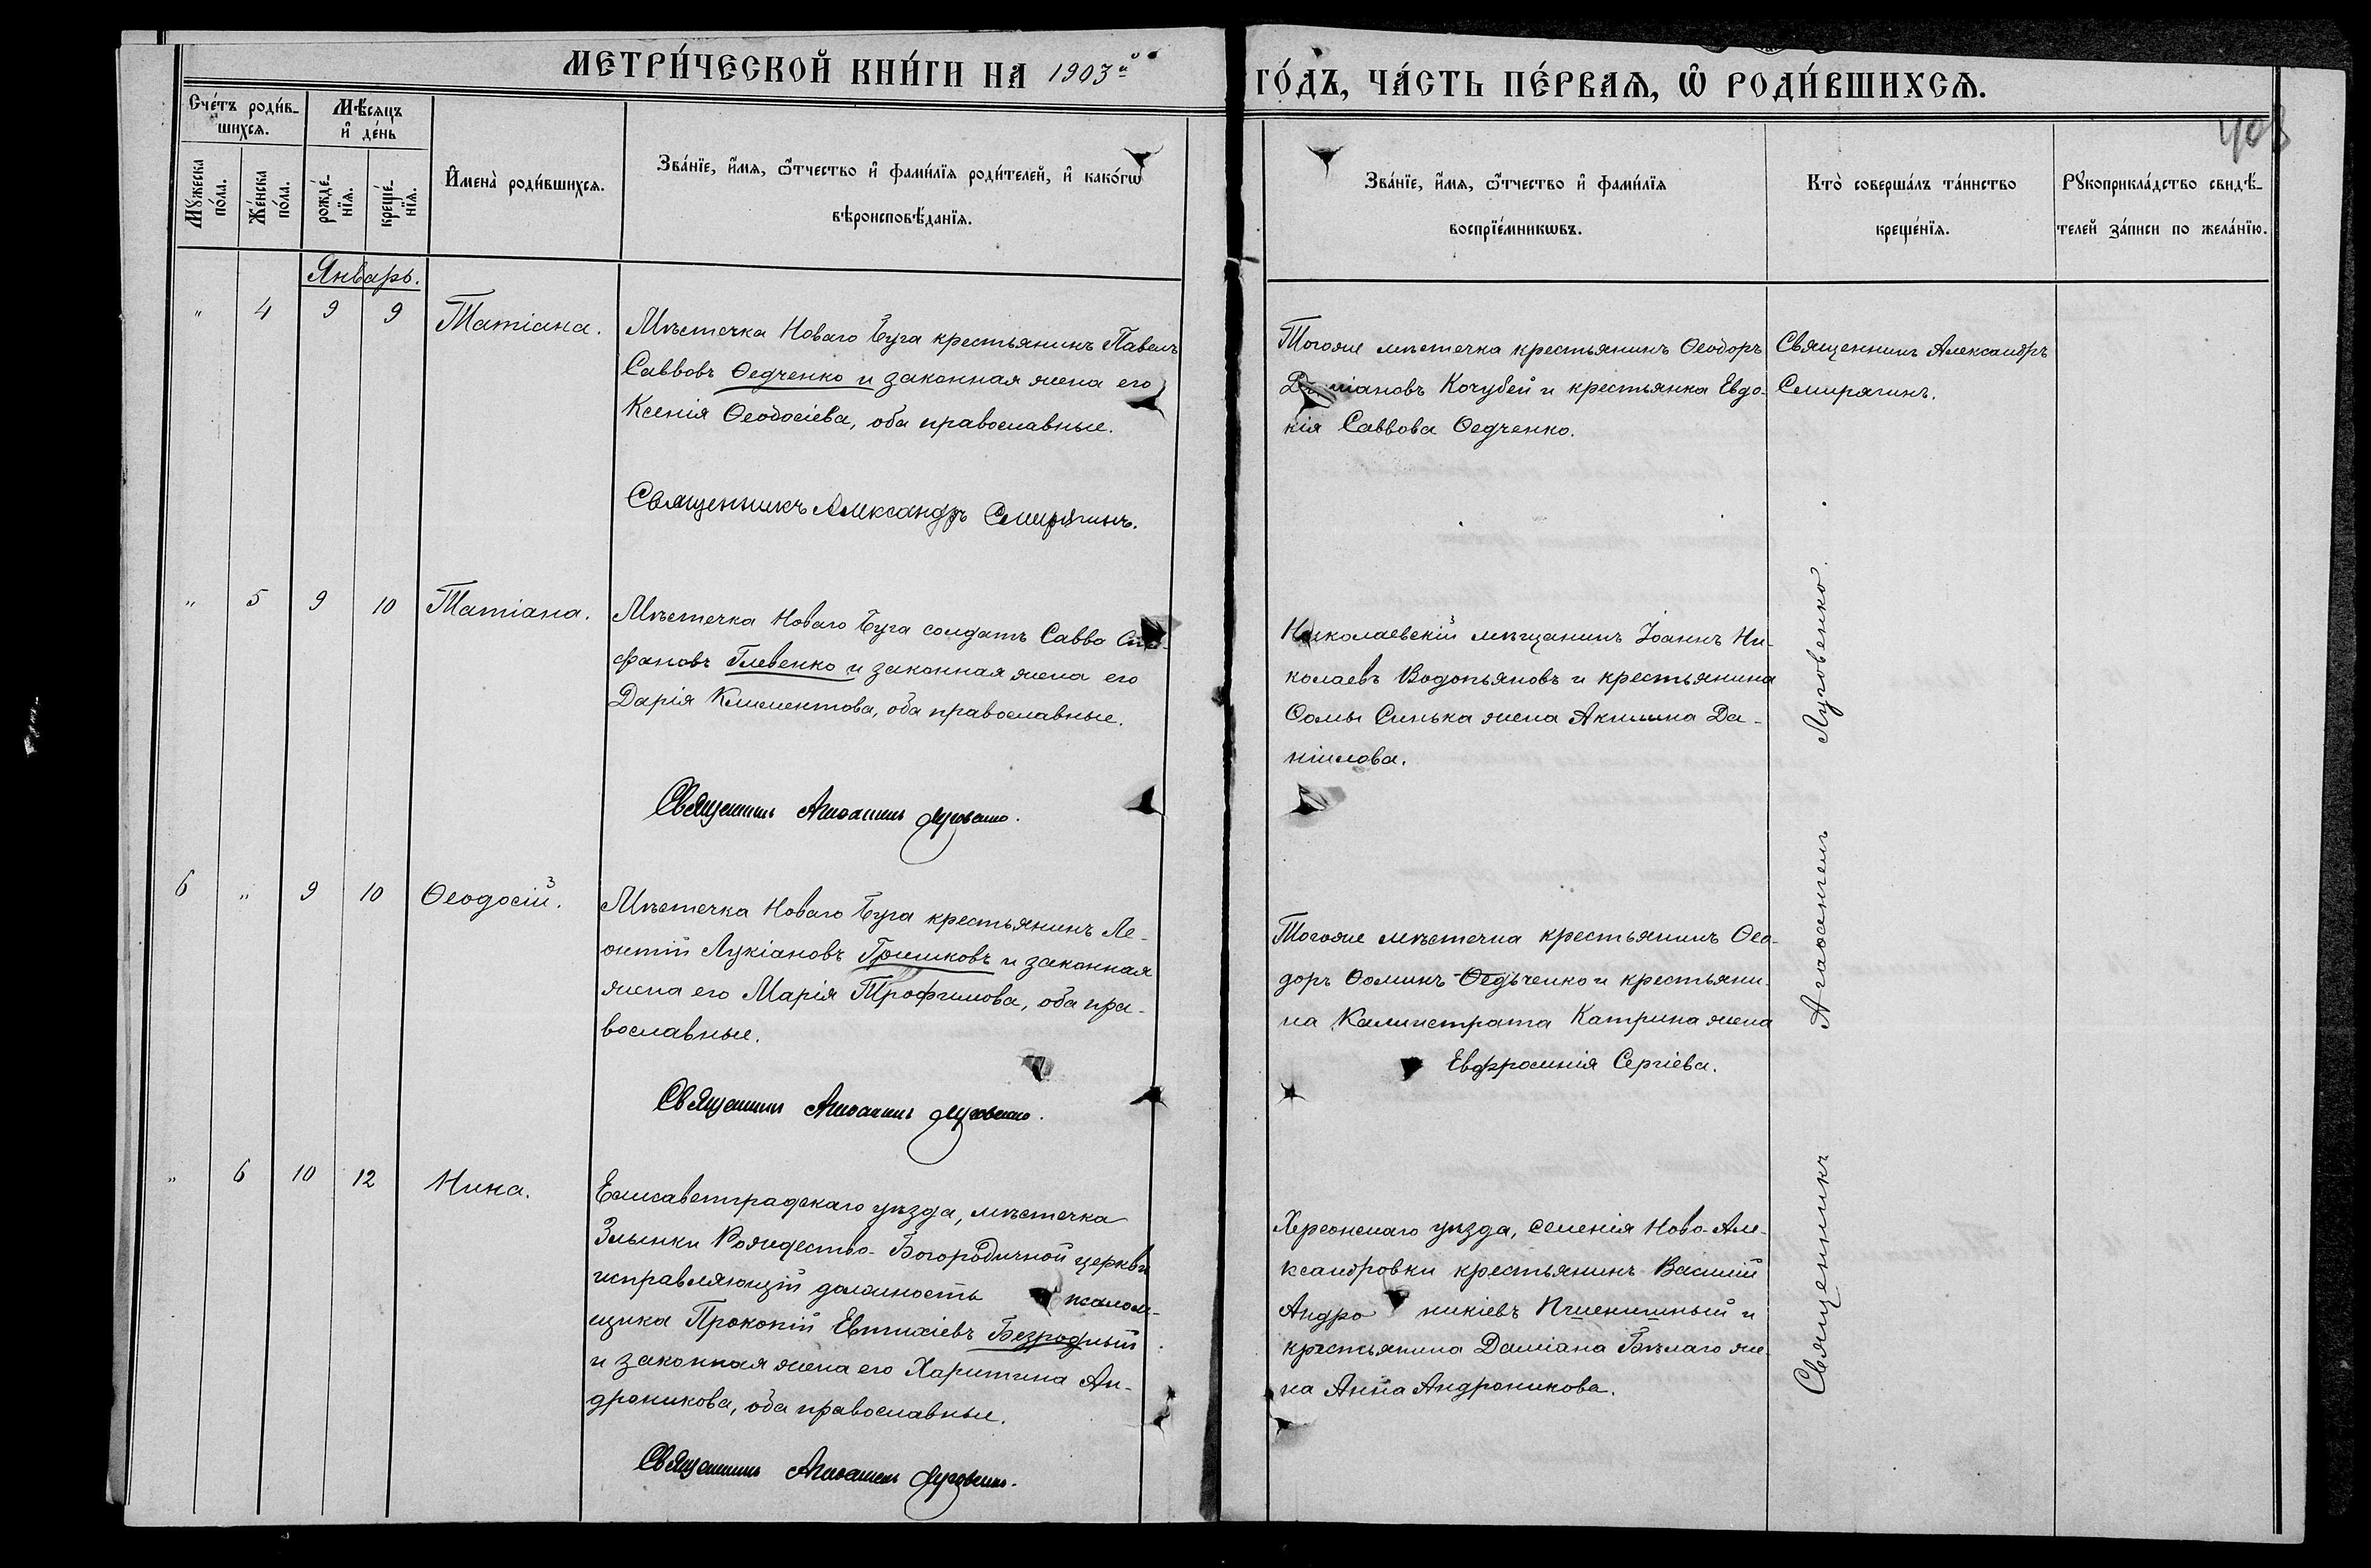 МЕТРИ́ЧЕСКОЙ КНИ́ГИ НА 1903й
ГО́ДЪ, ЧА́СТЬ ПЕ́РВАѦ, Ѡ҆ РОДИ́ВШИХСѦ.
408
Сче́тъ роди́в-
шихся.
Мѣ́сяцъ
и҆ де́нь
Мꙋ́жеска
по́ла.
Же́нска
по́ла.
рожде́-
нїѧ.
креще́-
нїѧ.
И҆мена̀ роди́вшихсѧ.
Зва́нїе, и҆́мѧ, ѻ҆́тчество и҆ фами́лїѧ роди́телей, и҆ како́гѡ
вѣроисповѣ́данїѧ.
Зва́нїе, и҆́мѧ, ѻ҆́тчество и҆ фами́лїѧ
воспрїе́мникѡвъ.
Кто̀ соверша́лъ та́инство
креще́нїѧ.
Рꙋкоприкла́дство свидѣ́-
телей за́писи по жела́нїю.
Январь.
" 4 9 9 Татіана.
Мѣстечка Новаго Буга крестьянинъ Павелъ
Саввовъ Ѳедченко и законная жена его
Ксенія Ѳеодосіева, оба православные.
Священникъ Александръ Смирягинъ.
Тогоже мѣстечка крестьянинъ Ѳеодоръ
Даміановъ Кочубей и крестьянка Евдо-
кія Саввова Ѳедченко.
Священникъ Александръ
Смирягинъ.
" 5 9 10 Татіана.
Мѣстечка Новаго Буга солдатъ Савва Сте-
фановъ Глевенко и законная жена его
Дарія Климентова, оба православные.
Священникъ Агаѳангелъ Луговенко.
Николаевскій мѣщанинъ Іоаннъ Ни-
колаевъ Водопьяновъ и крестьянина
Ѳомы Синька жена Акилина Да-
ніилова.
6 " 9 10 Ѳеодосій.
Мѣстечка Новаго Буга крестьянинъ Ле-
онтій Лукіановъ Гришковъ и законная
жена его Марія Трофимова, оба пра-
вославные.
Священникъ Агаѳангелъ Луговенко.
Тогоже мѣстечка крестьянинъ Ѳео-
доръ Ѳоминъ Ѳедьченко и крестьяни-
на Каллистрата Катрича жена
Евфросинія Сергіева.
" 6 10 12 Нина.
Елисаветградскаго уѣзда, мѣстечка
Злынки Рождество-Богородичной церкви
исправляющій должность псалом-
щика Прокопій Евтихіевъ Безродный
и законная жена его Харитина Ан-
дроникова, оба православные.
Священникъ Агаѳангелъ Луговенко.
Херсонскаго уѣзда, селенія Ново-Але-
ксандровки крестьянинъ Василій
Андроникіевъ Пшеничный и
крестьянина Даміана Бѣлаго же-
на Анна Андроникова.
Священникъ Агаѳангелъ Луговенко.